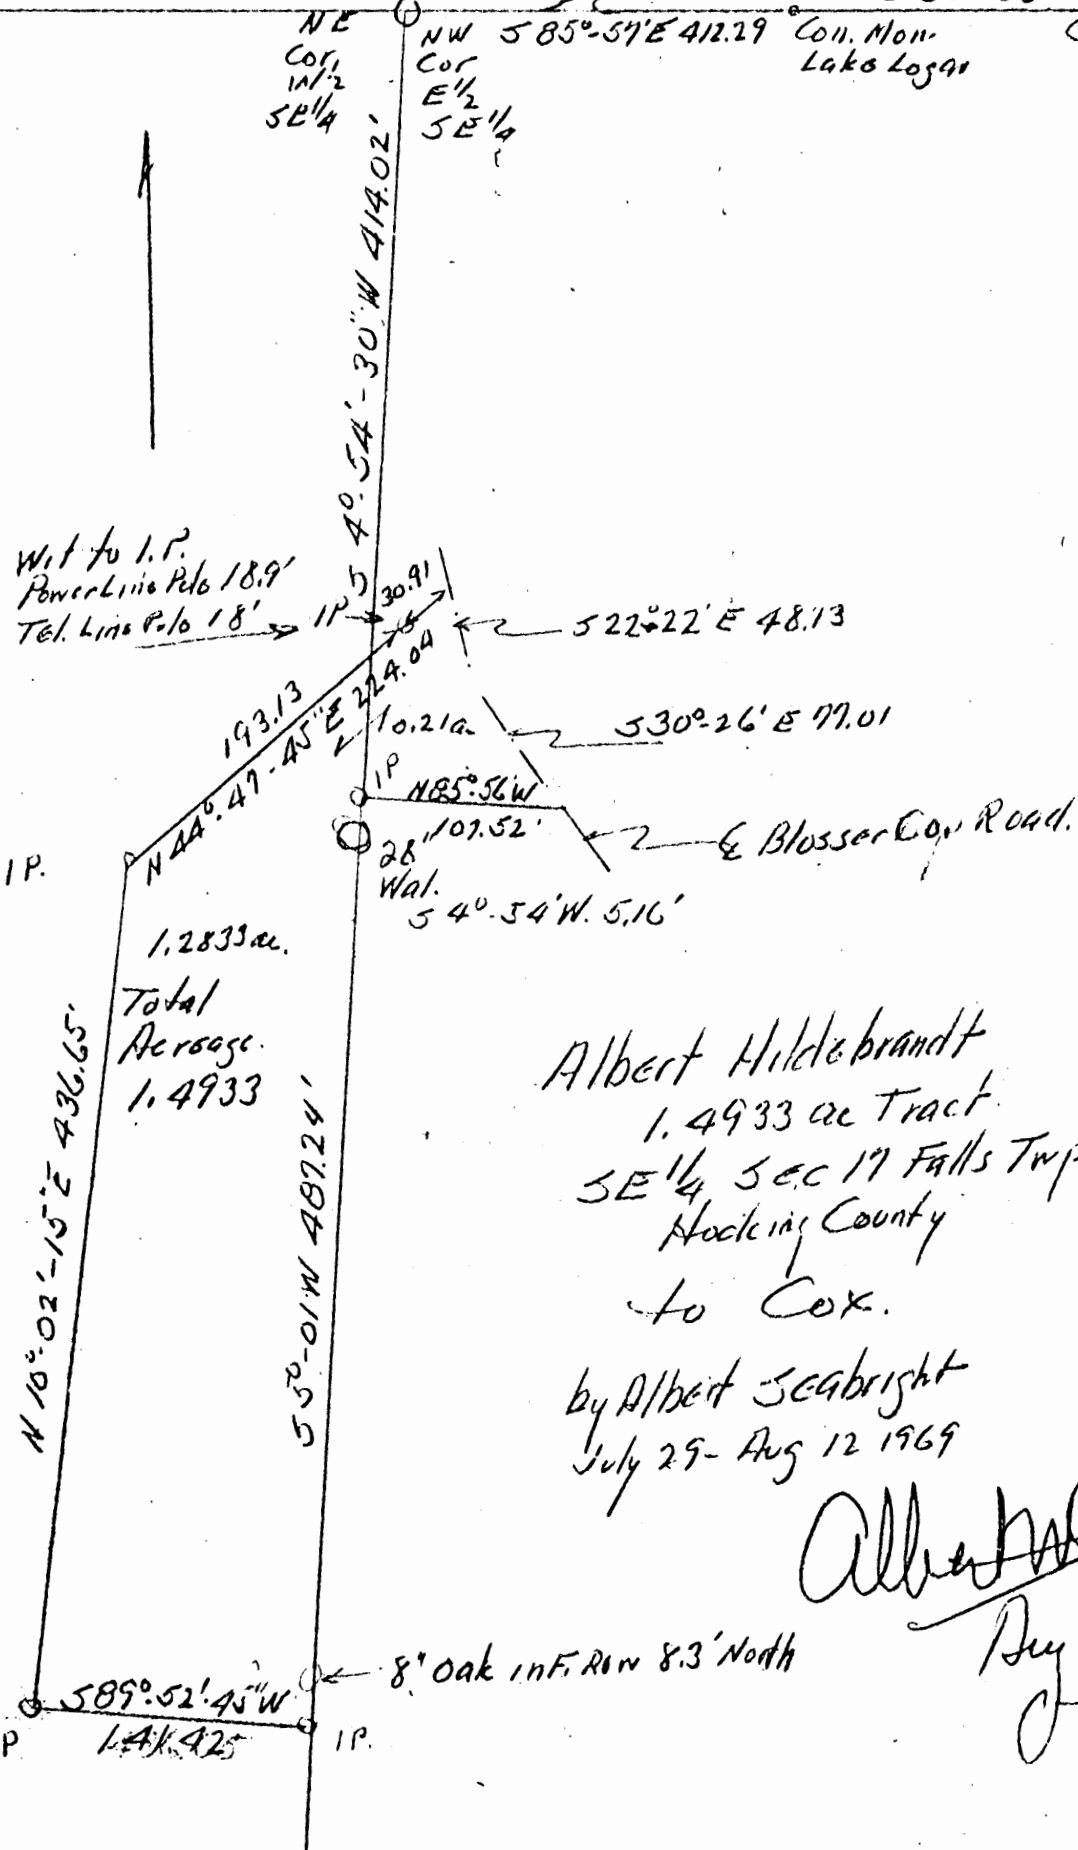 NE
Cor.
W 1/2
SE 1/4
NW
Cor
E 1/2
SE 1/4
S 85°-57' E 412.29
Con. Mon.
Lake Logan
S 4°-54'-30" W 414.02'
Wit to I.P.
Power Line Pole 18.9'
Tel. Line Pole 18'
IP
30.91
S 22°-22' E 48.13
193.13
N 44°-47-45" E 224.04
0.21 a.
S 30°-26' E 77.01
IP
N 85°-56 W
107.52'
28"
Wal.
S 4°-54' W. 5.16'
℄ Blosser Cor. Road.
IP.
1.2833 ac.
Total
Acreage.
1.4933
N 10°-02'-15" E 436.65'
S 5°-01 W 487.24'
Albert Hildebrandt
1.4933 ac Tract.
SE 1/4 Sec 17 Falls Twp
Hocking County
to Cox.
by Albert Seabright
July 29- Aug 12 1969
Albert
8" Oak in F. Row 8.3' North
S 89°-52'-45" W
141.425
P
IP.